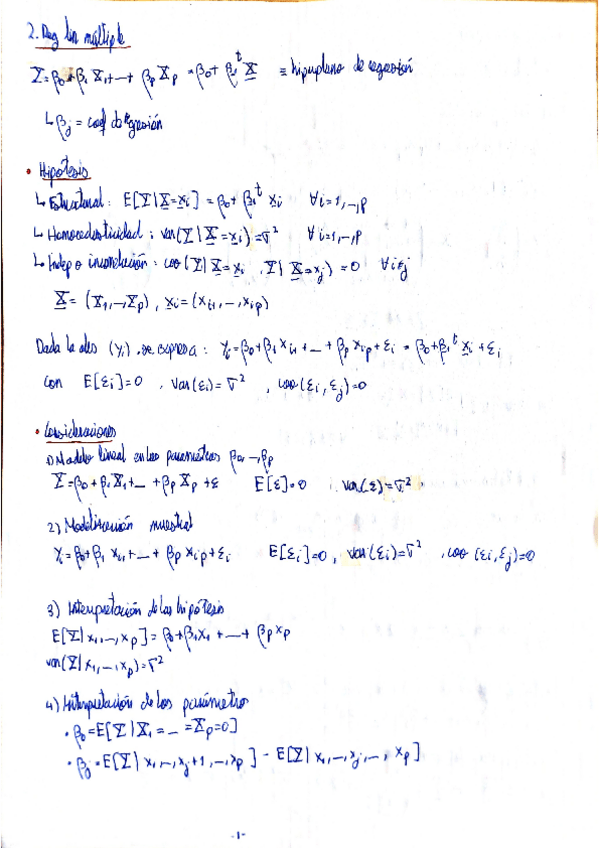 2. Reg lin múltiple
Y = β₀ + β₁ X₁ + ... + βp Xp = β₀ + β₁ᵗ X ≡ hiperplano de regresión
↳ βj = coef de regresión
• Hipótesis
↳ Estructural: E[Y | X = xi] = β₀ + β₁ᵗ xi ∀ i=1,...,p
↳ Homocedasticidad: var(Y | X = xi) = σ² ∀ i=1,...,p
↳ Indep o incorrelación: cov(Y | X = xi, Y | X = xj) = 0 ∀ i≠j
X = (X₁,...,Xp), xi = (xi1,...,xip)
Dada la obs (yi), se expresa: yi = β₀ + β₁ xi1 + ... + βp xip + εi = β₀ + β₁ᵗ xi + εi
con E[εi] = 0, var(εi) = σ², cov(εi, εj) = 0
• Consideraciones
1) Modelo lineal en los parámetros β₀,...,βp
Y = β₀ + β₁ X₁ + ... + βp Xp + ε E[ε] = 0 var(ε) = σ²
2) Modelización muestral
yi = β₀ + β₁ xi1 + ... + βp xip + εi E[εi] = 0, var(εi) = σ², cov(εi, εj) = 0
3) Interpretación de las hipótesis
E[Y | x₁,...,xp] = β₀ + β₁x₁ + ... + βp xp
var(Y | x₁,...,xp) = σ²
4) Interpretación de los parámetros
• β₀ = E[Y | X₁ = ... = Xp = 0]
• βj = E[Y | x₁,...,xj+1,...,xp] - E[Y | x₁,...,xj,...,xp]
-1-